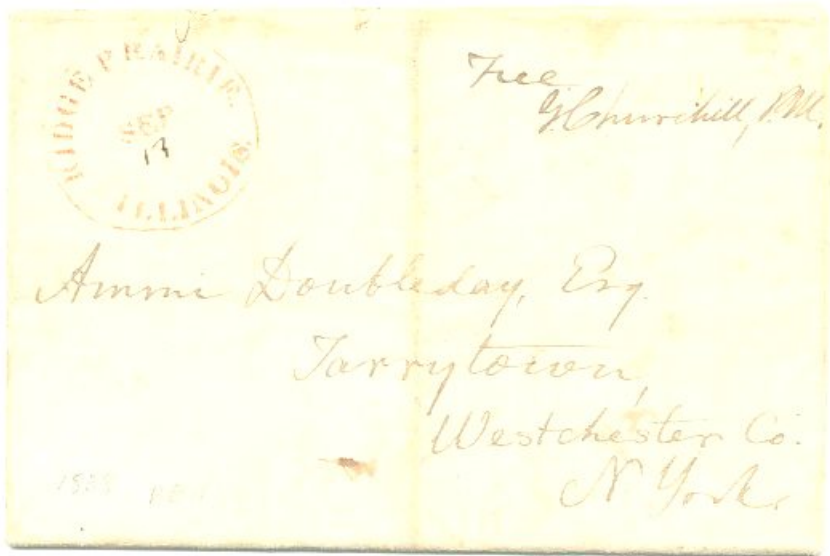 RIDGE PRAIRIE.
SEP
13
ILLINOIS.
Free
G. Churchill, P.M.
Ammi Doubleday, Esq.
Tarrytown,
Westchester Co.
N York